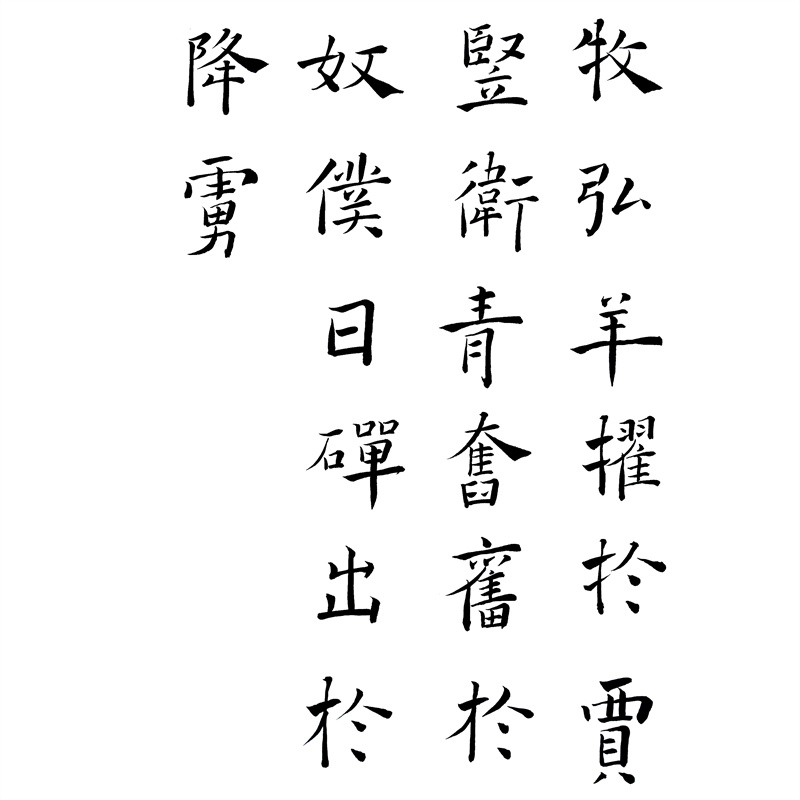 牧弘羊擢於賈
竪衛青奮奮於
奴僕日磾出於
降虜